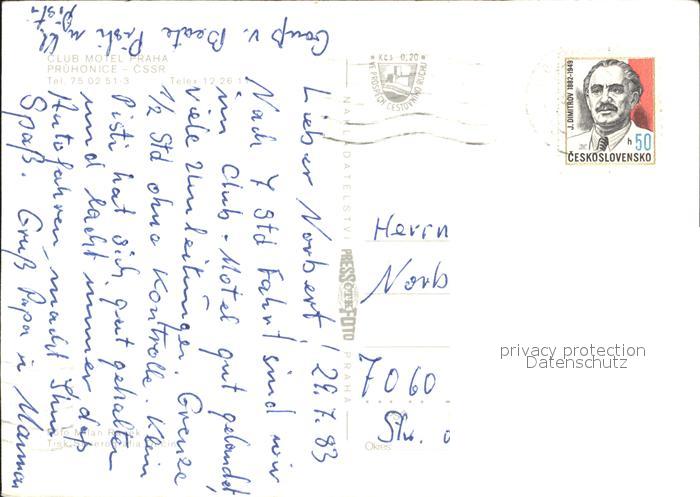 CLUB MOTEL PRAHA
PRŮHONICE - ČSSR
Tel. 75 02 51-3 Telex 12 26 1
Lieber Norbert! 29.7.83
Nach 7 Std Fahrt sind wir
im Club-Motel gut gelandet,
viele Umleitungen. Grenze
1/2 Std ohne Kontrolle. Klein
Pisti hat sich gut gehalten
und lacht immer, das
Autofahren macht Ihm
Spaß. Gruß Papa u Maman
Gruß v. Beate Pisti u kl
Pisti
Kčs 0,20
NAKLADATELSTVÍ PRESSFOTO PRAHA
J. DIMITROV 1882-1949
h 50
ČESKOSLOVENSKO
Herrn
Norb
7060
Okres
privacy protection
Datenschutz